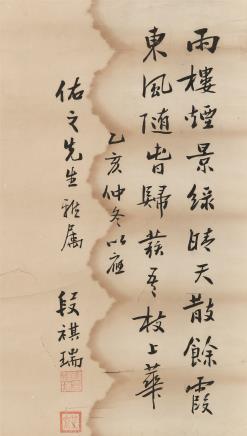 雨樓煙景綠晴天散餘霞
東風隨旹歸發吾枝上華
乙亥仲冬以應
佑之先生雅属
段祺瑞